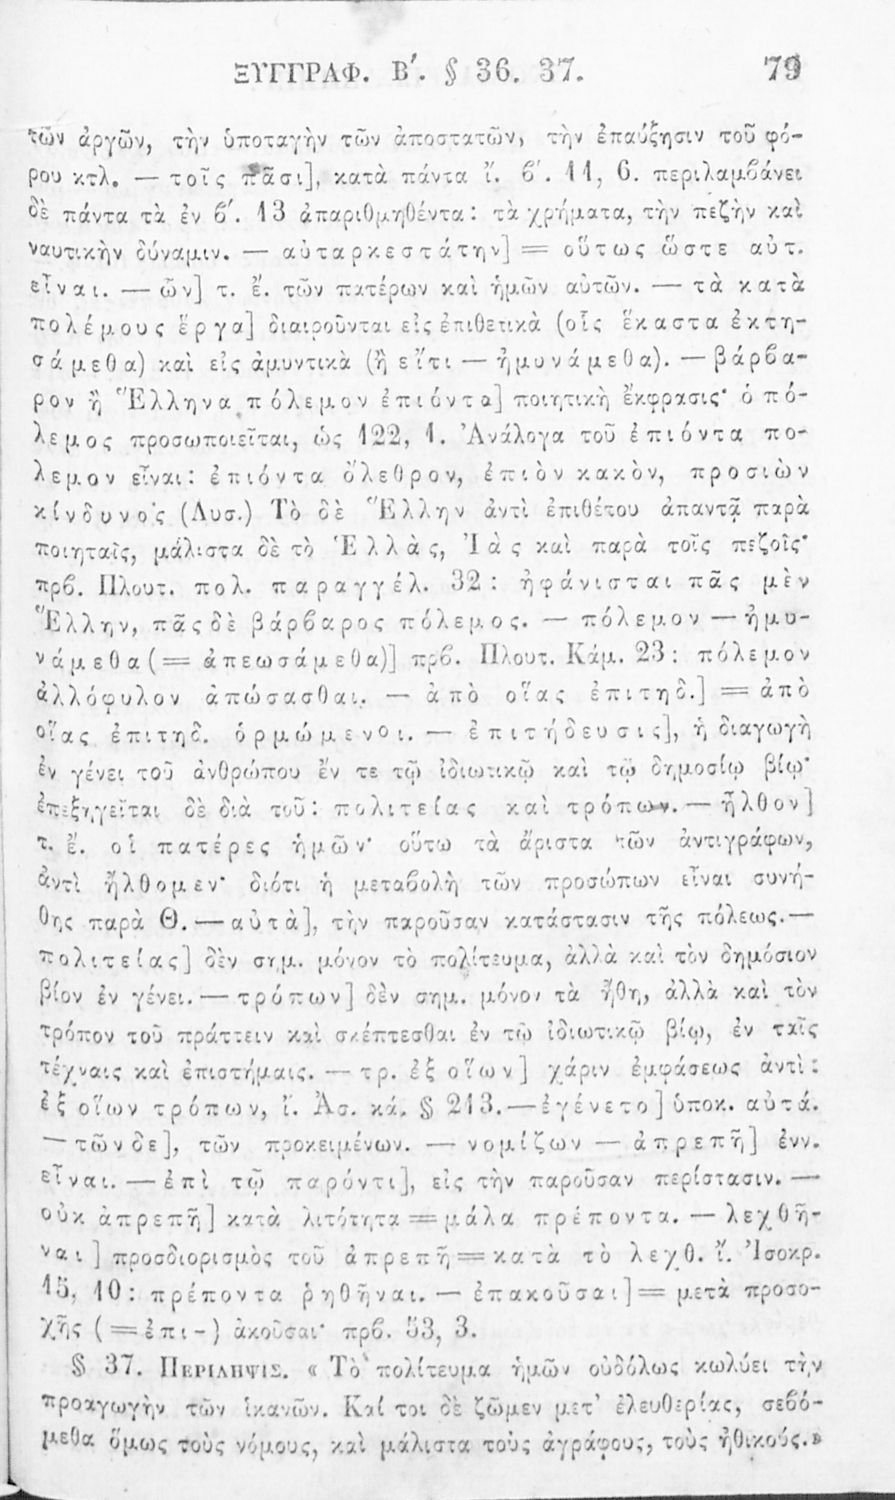 ΞΥΓΓΡΑΦ. Β΄. § 36. 37. 79
τῶν ἀργῶν, τὴν ὑποταγὴν τῶν ἀποστατῶν, τὴν ἐπαύξησιν τοῦ φό-
ρου κτλ. — τοῖς πᾶσι], κατὰ πάντα ἴ. β΄. 11, 6. περιλαμβάνει
δὲ πάντα τὰ ἐν β΄. 13 ἀπαριθμηθέντα: τὰ χρήματα, τὴν πεζὴν καὶ
ναυτικὴν δύναμιν. — αὐταρκεστάτην] = οὕτως ὥστε αὐτ.
εἶναι. — ὧν] τ. ἔ. τῶν πατέρων καὶ ἡμῶν αὐτῶν. — τὰ κατὰ
πολέμους ἔργα] διαιροῦνται εἰς ἐπιθετικὰ (οἷς ἕκαστα ἐκτη-
σάμεθα) καὶ εἰς ἀμυντικὰ (ἢ εἴτι — ἠμυνάμεθα). — βάρβα-
ρον ἢ Ἕλληνα πόλεμον ἐπιόντα] ποιητικὴ ἔκφρασις· ὁ πό-
λεμος προσωποιεῖται, ὡς 122, 1. Ἀνάλογα τοῦ ἐπιόντα πο-
λεμον εἶναι: ἐπιόντα ὄλεθρον, ἐπιὸν κακὸν, προσιὼν
κίνδυνος (Λυσ.) Τὸ δὲ Ἕλλην ἀντὶ ἐπιθέτου ἀπαντᾷ παρὰ
ποιηταῖς, μάλιστα δὲ τὸ Ἑλλὰς, Ἰὰς καὶ παρὰ τοῖς πεζοῖς·
πρβ. Πλουτ. πολ. παραγγέλ. 32: ἠφάνισται πᾶς μὲν
Ἕλλην, πᾶς δὲ βάρβαρος πόλεμος. — πόλεμον — ἠμυ-
νάμεθα (= ἀπεωσάμεθα)] πρβ. Πλουτ. Κάμ. 23: πόλεμον
ἀλλόφυλον ἀπώσασθαι. — ἀπὸ οἵας ἐπιτηδ.] = ἀπὸ
οἵας ἐπιτηδ. ὁρμώμενοι. — ἐπιτήδευσις], ἡ διαγωγὴ
ἐν γένει τοῦ ἀνθρώπου ἔν τε τῷ ἰδιωτικῷ καὶ τῷ δημοσίῳ βίῳ·
ἐπεξηγεῖται δὲ διὰ τοῦ: πολιτείας καὶ τρόπων. — ἦλθον]
τ. ἔ. οἱ πατέρες ἡμῶν· οὕτω τὰ ἄριστα τῶν ἀντιγράφων,
ἀντὶ ἤλθομεν· διότι ἡ μεταβολὴ τῶν προσώπων εἶναι συνή-
θης παρὰ Θ. — αὐτὰ], τὴν παροῦσαν κατάστασιν τῆς πόλεως. —
πολιτείας] δὲν σημ. μόνον τὸ πολίτευμα, ἀλλὰ καὶ τὸν δημόσιον
βίον ἐν γένει. — τρόπων] δὲν σημ. μόνον τὰ ἤθη, ἀλλὰ καὶ τὸν
τρόπον τοῦ πράττειν καὶ σκέπτεσθαι ἐν τῷ ἰδιωτικῷ βίῳ, ἐν ταῖς
τέχναις καὶ ἐπιστήμαις. — τρ. ἐξ οἵων] χάριν ἐμφάσεως ἀντὶ:
ἐξ οἵων τρόπων, ἴ. Ἀσ. κά. § 213. — ἐγένετο] ὑποκ. αὐτά.
— τῶνδε], τῶν προκειμένων. — νομίζων — ἀπρεπῆ] ἐνν.
εἶναι. — ἐπὶ τῷ παρόντι], εἰς τὴν παροῦσαν περίστασιν. —
οὐκ ἀπρεπῆ] κατὰ λιτότητα = μάλα πρέποντα. — λεχθῆ-
ναι] προσδιορισμὸς τοῦ ἀπρεπῆ = κατὰ τὸ λεχθ. ἴ. Ἰσοκρ.
15, 10: πρέποντα ῥηθῆναι. — ἐπακοῦσαι] = μετὰ προσο-
χῆς (= ἐπι-) ἀκοῦσαι· πρβ. 53, 3.
§ 37. ΠΕΡΙΛΗΨΙΣ. « Τὸ πολίτευμα ἡμῶν οὐδόλως κωλύει τὴν
προαγωγὴν τῶν ἱκανῶν. Καί τοι δὲ ζῶμεν μετ' ἐλευθερίας, σεβό-
μεθα ὅμως τοὺς νόμους, καὶ μάλιστα τοὺς ἀγράφους, τοὺς ἠθικούς.»